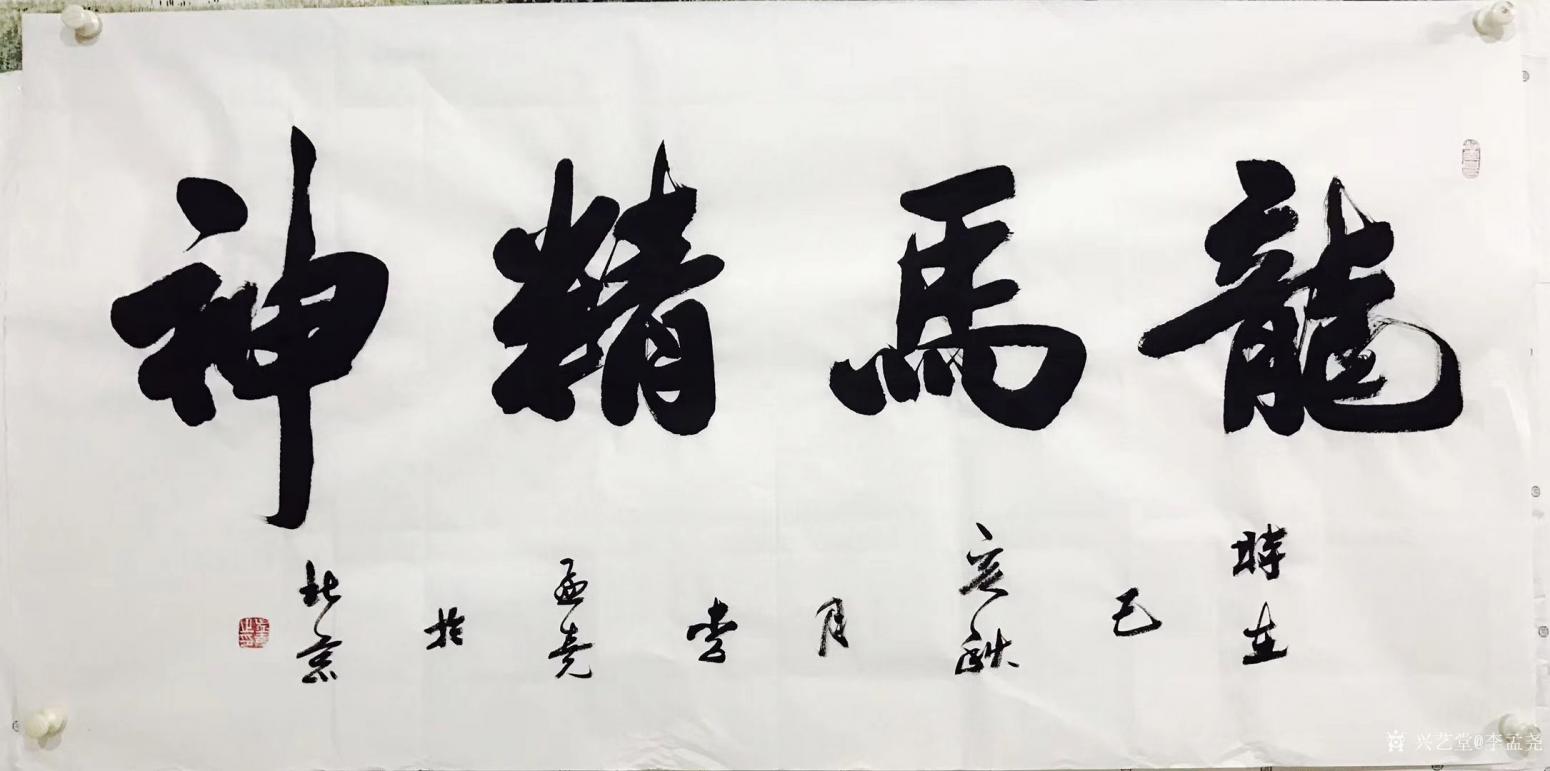 龍馬精神
時在己亥秋月李孟堯於北京
兴艺堂@李孟尧